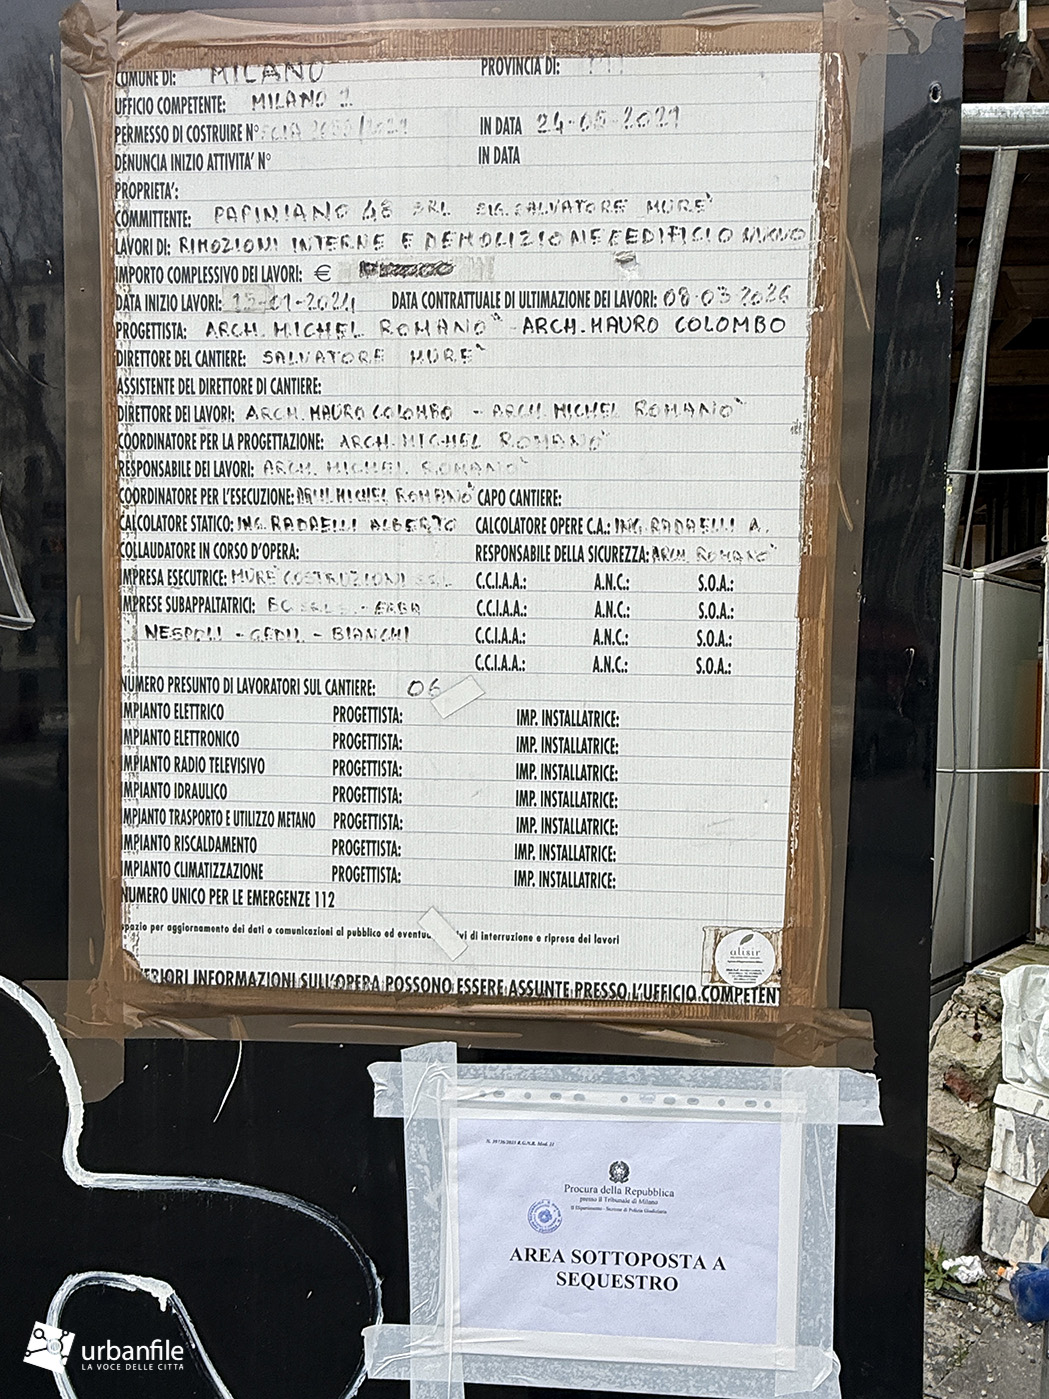 COMUNE DI: MILANO PROVINCIA DI: MI
UFFICIO COMPETENTE: MILANO 2
PERMESSO DI COSTRUIRE N° SCIA /2021 IN DATA 24-06-2021
DENUNCIA INIZIO ATTIVITA' N° IN DATA
PROPRIETA':
COMMITTENTE: PAPINIANO 48 SRL SIG. SALVATORE MURE'
LAVORI DI: RIMOZIONI INTERNE E DEMOLIZIONE E EDIFICIO NUOVO
IMPORTO COMPLESSIVO DEI LAVORI: €
DATA INIZIO LAVORI: 15-01-2024 DATA CONTRATTUALE DI ULTIMAZIONE DEI LAVORI: 08-03-2026
PROGETTISTA: ARCH. MICHEL ROMANO' - ARCH. MAURO COLOMBO
DIRETTORE DEL CANTIERE: SALVATORE MURE'
ASSISTENTE DEL DIRETTORE DI CANTIERE:
DIRETTORE DEI LAVORI: ARCH. MAURO COLOMBO - ARCH. MICHEL ROMANO'
COORDINATORE PER LA PROGETTAZIONE: ARCH. MICHEL ROMANO'
RESPONSABILE DEI LAVORI: ARCH. MICHEL ROMANO'
COORDINATORE PER L'ESECUZIONE: ARCH. MICHEL ROMANO' CAPO CANTIERE:
CALCOLATORE STATICO: ING. RADAELLI ALBERTO CALCOLATORE OPERE C.A.: ING. RADAELLI A.
COLLAUDATORE IN CORSO D'OPERA: RESPONSABILE DELLA SICUREZZA: ARCH. ROMANO'
IMPRESA ESECUTRICE: MURE' COSTRUZIONI SRL C.C.I.A.A.: A.N.C.: S.O.A.:
IMPRESE SUBAPPALTATRICI: C.C.I.A.A.: A.N.C.: S.O.A.:
NESPOLI - GEDIL - BIANCHI C.C.I.A.A.: A.N.C.: S.O.A.:
C.C.I.A.A.: A.N.C.: S.O.A.:
NUMERO PRESUNTO DI LAVORATORI SUL CANTIERE: 06
IMPIANTO ELETTRICO PROGETTISTA: IMP. INSTALLATRICE:
IMPIANTO ELETTRONICO PROGETTISTA: IMP. INSTALLATRICE:
IMPIANTO RADIO TELEVISIVO PROGETTISTA: IMP. INSTALLATRICE:
IMPIANTO IDRAULICO PROGETTISTA: IMP. INSTALLATRICE:
IMPIANTO TRASPORTO E UTILIZZO METANO PROGETTISTA: IMP. INSTALLATRICE:
IMPIANTO RISCALDAMENTO PROGETTISTA: IMP. INSTALLATRICE:
IMPIANTO CLIMATIZZAZIONE PROGETTISTA: IMP. INSTALLATRICE:
NUMERO UNICO PER LE EMERGENZE 112
spazio per aggiornamento dei dati o comunicazioni al pubblico ed eventu vi di interruzione e ripresa dei lavori
alisir
ERIORI INFORMAZIONI SULL'OPERA POSSONO ESSERE ASSUNTE PRESSO L'UFFICIO COMPETENT
R.G.N.R. Mod. 21
Procura della Repubblica
presso il Tribunale di Milano
II Dipartimento - Sezione di Polizia Giudiziaria
AREA SOTTOPOSTA A
SEQUESTRO
urbanfile
LA VOCE DELLE CITTÀ